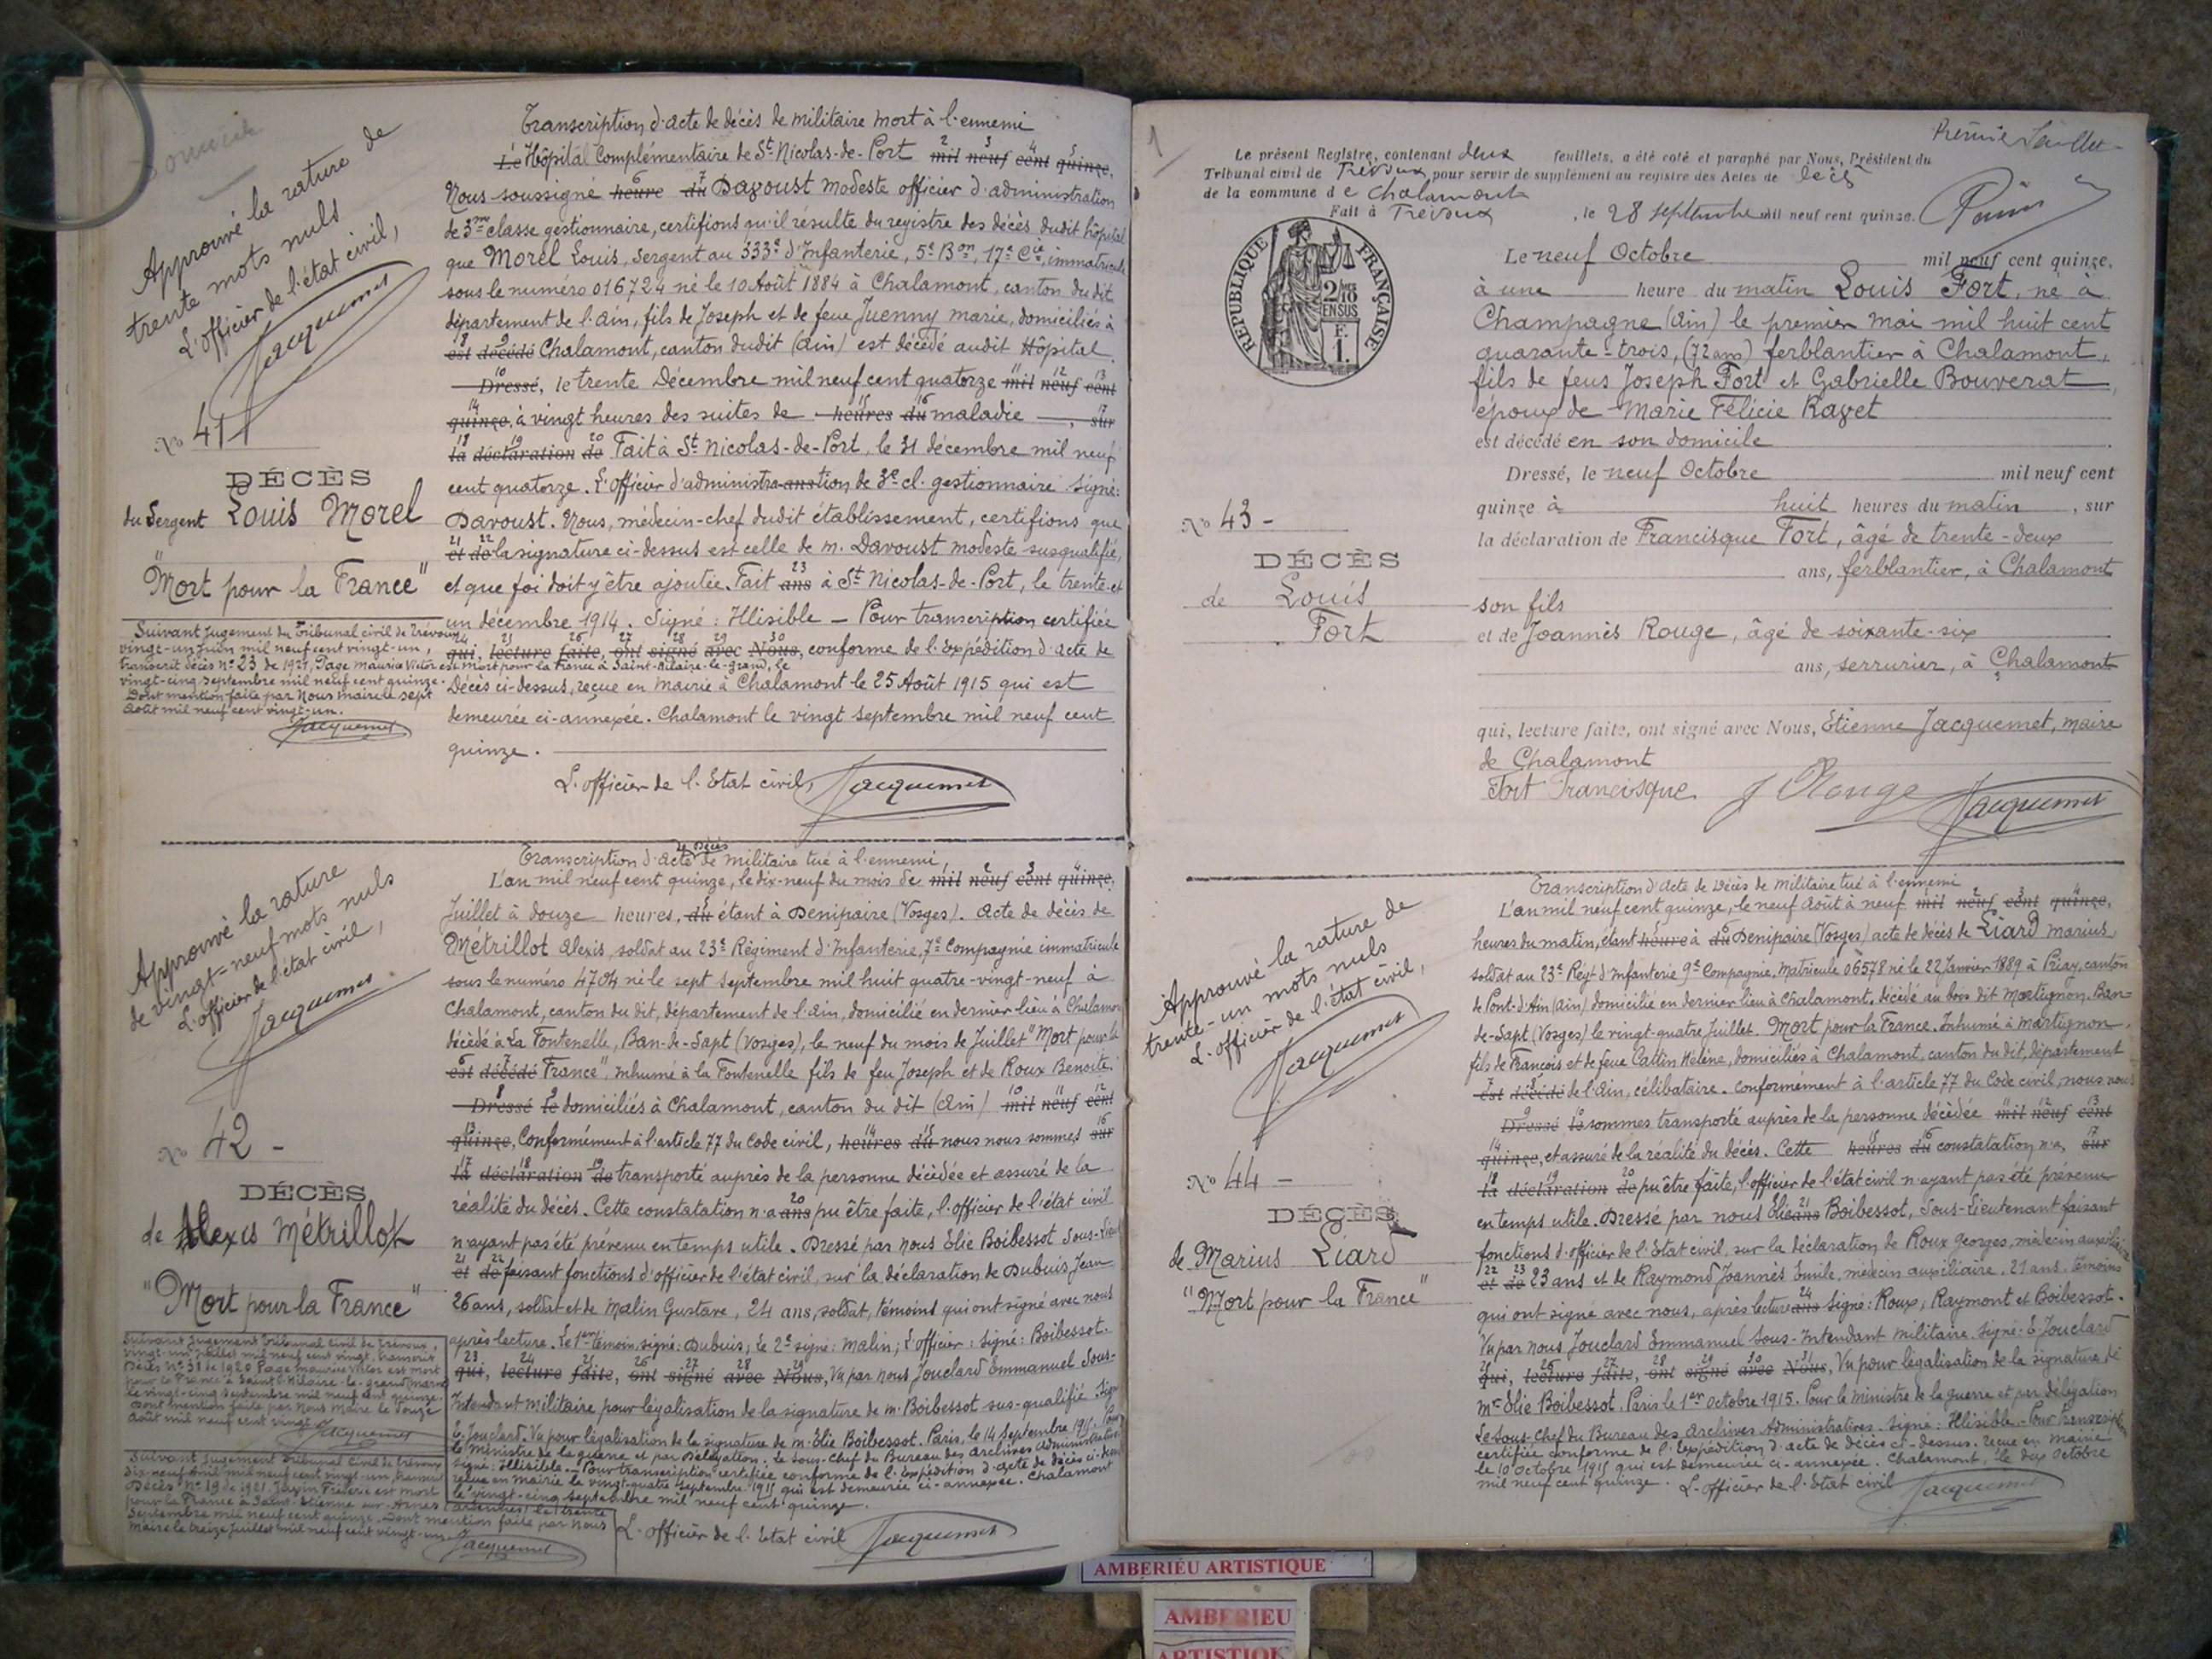 Approuvé la rature de
trente mots nuls
L'officier de l'état civil,
Jacquemet
No 41
DÉCÈS
du Sergent Louis Morel
"Mort pour la France"
Suivant jugement du Tribunal civil de Trévoux
vingt-un Juin mil neuf cent vingt-un,
transcrit décès no 23 de 1921, Page Maurice Victor est mort pour la France à Saint-Hilaire-le-Grand, le
vingt-cinq septembre mil neuf cent quinze.
Dont mention faite par Nous maire le sept
Août mil neuf cent vingt-un.
Jacquemet
Transcription d'acte de décès de militaire mort à l'ennemi
Le Hôpital Complémentaire de St Nicolas-de-Port mil neuf cent quinze,
Nous soussigné heure du Davoust Modeste officier d'administration
de 3me classe gestionnaire, certifions qu'il résulte du registre des décès dudit hôpital
que Morel Louis, Sergent au 333e d'Infanterie, 5e Bon, 17e Cie, immatriculé
sous le numéro 016724 né le 10 Août 1884 à Chalamont, canton du dit
département de l'Ain, fils de Joseph et de feue Juenny Marie, domiciliés à
est décédé Chalamont, canton dudit (Ain) est décédé audit Hôpital
Dressé, le trente Décembre mil neuf cent quatorze mil neuf cent
quinze, à vingt heures des suites de heures du maladie , sur
la déclaration de Fait à St Nicolas-de-Port, le 31 décembre mil neuf
cent quatorze. L'officier d'administra ans tion de 3e cl. gestionnaire signé:
Davoust. Nous, médecin-chef dudit établissement, certifions que
et de la signature ci-dessus est celle de M. Davoust Modeste susqualifié,
et que foi doit y être ajoutée. Fait ans à St Nicolas-de-Port, le trente-et-
un décembre 1914. Signé: Illisible - Pour transcription certifiée
qui, lecture faite, ont signé avec Nous, conforme de l'expédition d'acte de
Décès ci-dessus, reçue en mairie à Chalamont le 25 Août 1915 qui est
demeurée ci-annexée. Chalamont le vingt septembre mil neuf cent
quinze.
L'officier de l'Etat civil, Jacquemet
Approuvé la rature
de vingt-neuf mots nuls
L'officier de l'état civil,
Jacquemet
No 42 -
DÉCÈS
de Alexis Métrillot
"Mort pour la France"
Suivant jugement Tribunal Civil de Trévoux,
vingt-un Juillet mil neuf cent vingt, transcrit
Décès no 31 de 1920 Page Maurice Victor est mort
pour la France à Saint-Hilaire-le-Grand Marne
le vingt-cinq septembre mil neuf cent quinze.
Dont mention faite par Nous Maire le douze
Août mil neuf cent vingt
Jacquemet
Suivant Jugement Tribunal Civil de Trévoux
dix-neuf Avril mil neuf cent vingt-un, transcrit
Décès no 19 de 1921, est mort
pour la France à Saint-Etienne-sur-Arnes (Ardennes) le trente
septembre mil neuf cent quinze. Dont mention faite par Nous
Maire le treize Juillet mil neuf cent vingt-un
Jacquemet
Transcription d'acte de Décès de militaire tué à l'ennemi,
L'an mil neuf cent quinze, le dix-neuf du mois de mil neuf cent quinze,
Juillet à douze heures, du étant à Denipaire (Vosges). Acte de décès de
Métrillot Alexis, soldat au 23e Régiment d'Infanterie, 7e Compagnie immatriculé
sous le numéro 4704 né le sept septembre mil huit quatre-vingt-neuf à
Chalamont, canton du dit, département de l'Ain, domicilié en dernier lieu à Chalamont
décédé à La Fontenelle, Ban-de-Sapt (Vosges), le neuf du mois de Juillet "Mort pour la
est décédé France", inhumé à la Fontenelle fils de feu Joseph et de Roux Benoîte.
Dressé le domiciliés à Chalamont, canton du dit (Ain) mil neuf cent
quinze, Conformément à l'article 77 du Code civil, heures du nous nous sommes sur
la déclaration de transporté auprès de la personne décédée et assuré de la
réalité du décès. Cette constatation n'a ans pu être faite, l'officier de l'état civil
n'ayant pas été prévenu en temps utile. Dressé par nous Elie Boibessot Sous-Lieut
et de faisant fonctions d'officier de l'état civil, sur la déclaration de Dubuis Jean
26 ans, soldat et de Malin Gustave, 24 ans, soldat, témoins qui ont signé avec nous
après lecture. Le 1er témoin signé: Dubuis; le 2e signé: Malin; l'officier: signé: Boibessot.
qui, lecture faite, ont signé avec Nous, Vu par nous Jouclard Emmanuel Sous-
Intendant militaire pour légalisation de la signature de M. Boibessot sus-qualifié. Signé
E. Jouclard. Vu pour légalisation de la signature de M. Elie Boibessot. Paris, le 14 septembre 1915. Pour
le Ministre de la guerre et par Délégation. le sous-Chef du Bureau des Archives Administratives
signé: Illisible. - Pour transcription certifiée conforme de l'Expédition d'acte de Décès ci-dessus
reçue en mairie le vingt-quatre septembre 1915 qui est demeurée ci-annexée. Chalamont
le vingt-cinq septembre mil neuf cent quinze.
L'officier de l'Etat civil Jacquemet
1
Le présent Registre, contenant deux feuillets, a été coté et paraphé par Nous, Président du
Tribunal civil de Trévoux, pour servir de supplément au registre des Actes de décès
de la commune de Chalamont
Fait à Trévoux, le 28 septembre mil neuf cent quinze.
RÉPUBLIQUE FRANÇAISE
2/10 EN SUS
F. 1.
No 43 -
DÉCÈS
de Louis
Fort
Le neuf Octobre mil neuf cent quinze,
à une heure du matin Louis Fort, né à
Champagne (Ain) le premier Mai mil huit cent
quarante-trois, (72 ans) ferblantier à Chalamont,
fils de feus Joseph Fort et Gabrielle Bouverat,
époux de Marie Félicie Ravet
est décédé en son domicile
Dressé, le neuf Octobre mil neuf cent
quinze à huit heures du matin, sur
la déclaration de Francisque Fort, âgé de trente-deux
ans, ferblantier, à Chalamont
son fils
et de Joannès Rouge, âgé de soixante-six
ans, serrurier, à Chalamont
qui, lecture faite, ont signé avec Nous, Etienne Jacquemet, maire
de Chalamont
Fort Francisque J Rouge Jacquemet
Approuvé la rature de
trente-un mots nuls
L'officier de l'état civil,
Jacquemet
No 44 -
DÉCÈS
de Marius Liard
"Mort pour la France"
Transcription d'Acte de Décès de militaire tué à l'ennemi
L'an mil neuf cent quinze, le neuf Août à neuf mil neuf cent quinze,
heures du matin, étant heure à du Denipaire (Vosges) acte de décès de Liard Marius,
soldat au 23e Régt d'Infanterie 9e Compagnie, Matricule 06578 né le 22 Janvier 1889 à Priay, canton
de Pont-d'Ain (Ain) domicilié en dernier lieu à Chalamont, décédé au bois dit Martignon, Ban-
de-Sapt (Vosges) le vingt-quatre Juillet. Mort pour la France. Inhumé à Martignon,
fils de François et de feue Cattin Hélène, domiciliés à Chalamont, canton du dit, département
est décédé de l'Ain, célibataire. Conformément à l'article 77 du Code civil, nous nous
Dressé le sommes transporté auprès de la personne décédée mil neuf cent
quinze, et assuré de la réalité du décès. Cette heures du constatation n'a, sur
la déclaration de pu être faite, l'officier de l'état civil n'ayant pas été prévenu
en temps utile. Dressé par nous Elie ans Boibessot, Sous-Lieutenant faisant
fonctions d'officier de l'Etat civil, sur la déclaration de Roux Georges, médecin auxiliaire
et de 23 ans et de Raymond Joannès Emile, médecin auxiliaire, 21 ans, témoins
qui ont signé avec nous, après lecture ans Signé: Roux, Raymont et Boibessot.
Vu par nous Jouclard Emmanuel Sous-Intendant militaire. Signé: E. Jouclard
qui, lecture faite, ont signé avec Nous, Vu pour légalisation de la signature de
Mr Elie Boibessot. Paris le 1er Octobre 1915. Pour le Ministre de la guerre et par délégation
Le Sous-Chef du Bureau des Archives Administratives. Signé: Illisible. - Pour transcription
certifiée conforme de l'Expédition d'acte de décès ci-dessus. reçue en mairie
le 10 Octobre 1915 qui est demeurée ci-annexée. Chalamont, le dix Octobre
mil neuf cent quinze. L'officier de l'Etat civil Jacquemet
AMBERIEU ARTISTIQUE
AMBERIEU
ARTISTIQUE